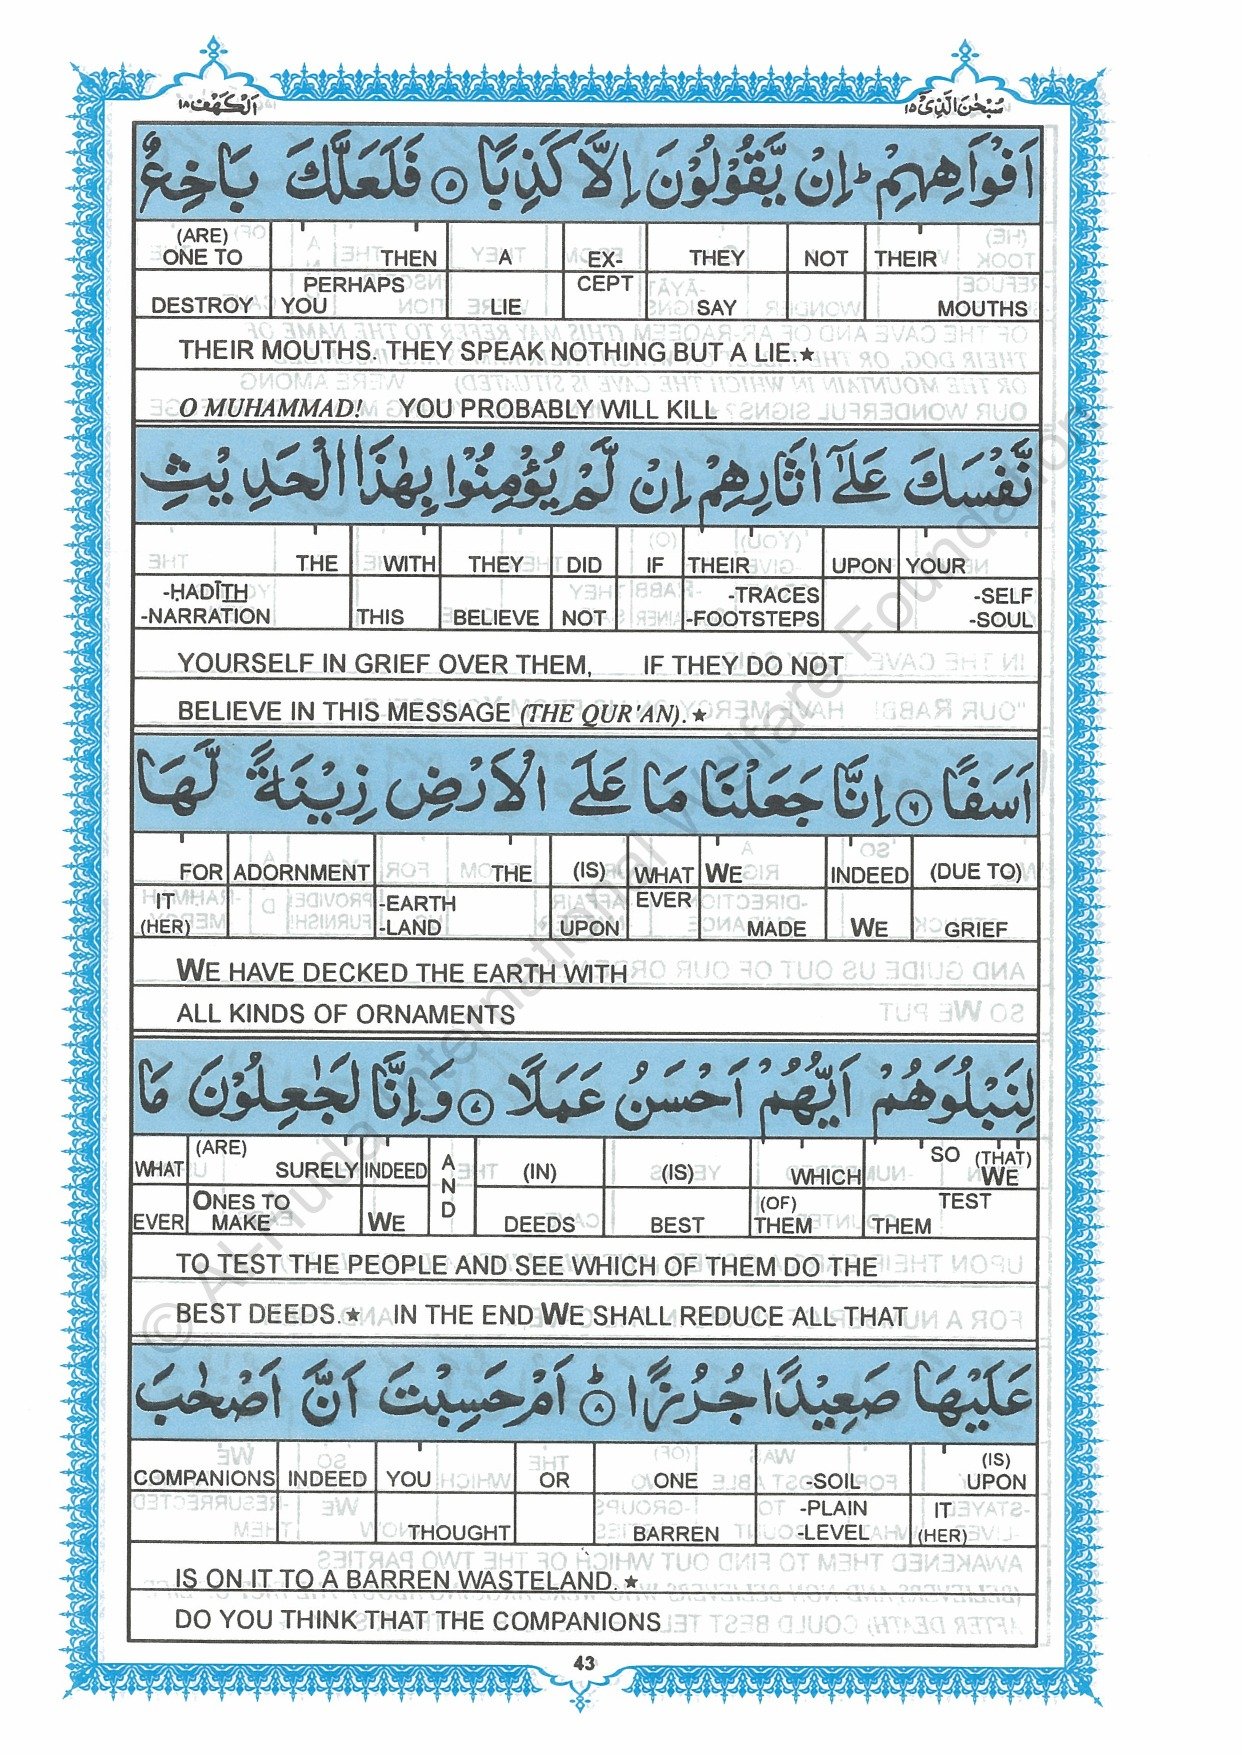 اَلْكَهْف ١٨
سُبْحٰنَ الَّذِىْٓ ١٥
اَفْوَاهِهِمْ ؕ اِنْ يَّقُوْلُوْنَ اِلَّا كَذِبًا ۝٥ فَلَعَلَّكَ بَاخِعٌ
(ARE) ONE TO DESTROY | THEN PERHAPS YOU | A LIE | EX- CEPT | THEY SAY | NOT | THEIR MOUTHS
THEIR MOUTHS. THEY SPEAK NOTHING BUT A LIE.★
O MUHAMMAD! YOU PROBABLY WILL KILL
نَّفْسَكَ عَلٰٓى اٰثَارِهِمْ اِنْ لَّمْ يُؤْمِنُوْا بِهٰذَا الْحَدِيْثِ
THE -HADĪTH -NARRATION | WITH THIS | THEY BELIEVE | DID NOT | IF | THEIR -TRACES -FOOTSTEPS | UPON | YOUR -SELF -SOUL
YOURSELF IN GRIEF OVER THEM, IF THEY DO NOT
BELIEVE IN THIS MESSAGE (THE QUR'AN).★
اَسَفًا ۝٦ اِنَّا جَعَلْنَا مَا عَلَى الْاَرْضِ زِيْنَةً لَّهَا
FOR IT (HER) | ADORNMENT | THE -EARTH -LAND | (IS) UPON | WHAT EVER | WE MADE | INDEED WE | (DUE TO) GRIEF
WE HAVE DECKED THE EARTH WITH
ALL KINDS OF ORNAMENTS
لِنَبْلُوَهُمْ اَيُّهُمْ اَحْسَنُ عَمَلًا ۝٧ وَاِنَّا لَجٰعِلُوْنَ مَا
WHAT EVER | (ARE) SURELY ONES TO MAKE | INDEED WE | AND | (IN) DEEDS | (IS) BEST | WHICH (OF) THEM | SO (THAT) WE TEST THEM
TO TEST THE PEOPLE AND SEE WHICH OF THEM DO THE
BEST DEEDS.★ IN THE END WE SHALL REDUCE ALL THAT
عَلَيْهَا صَعِيْدًا جُرُزًا ۝٨ؕ اَمْ حَسِبْتَ اَنَّ اَصْحٰبَ
COMPANIONS | INDEED | YOU THOUGHT | OR | ONE BARREN | -SOIL -PLAIN -LEVEL | (IS) UPON IT (HER)
IS ON IT TO A BARREN WASTELAND.★
DO YOU THINK THAT THE COMPANIONS
43
© Al-Huda International Welfare Foundation